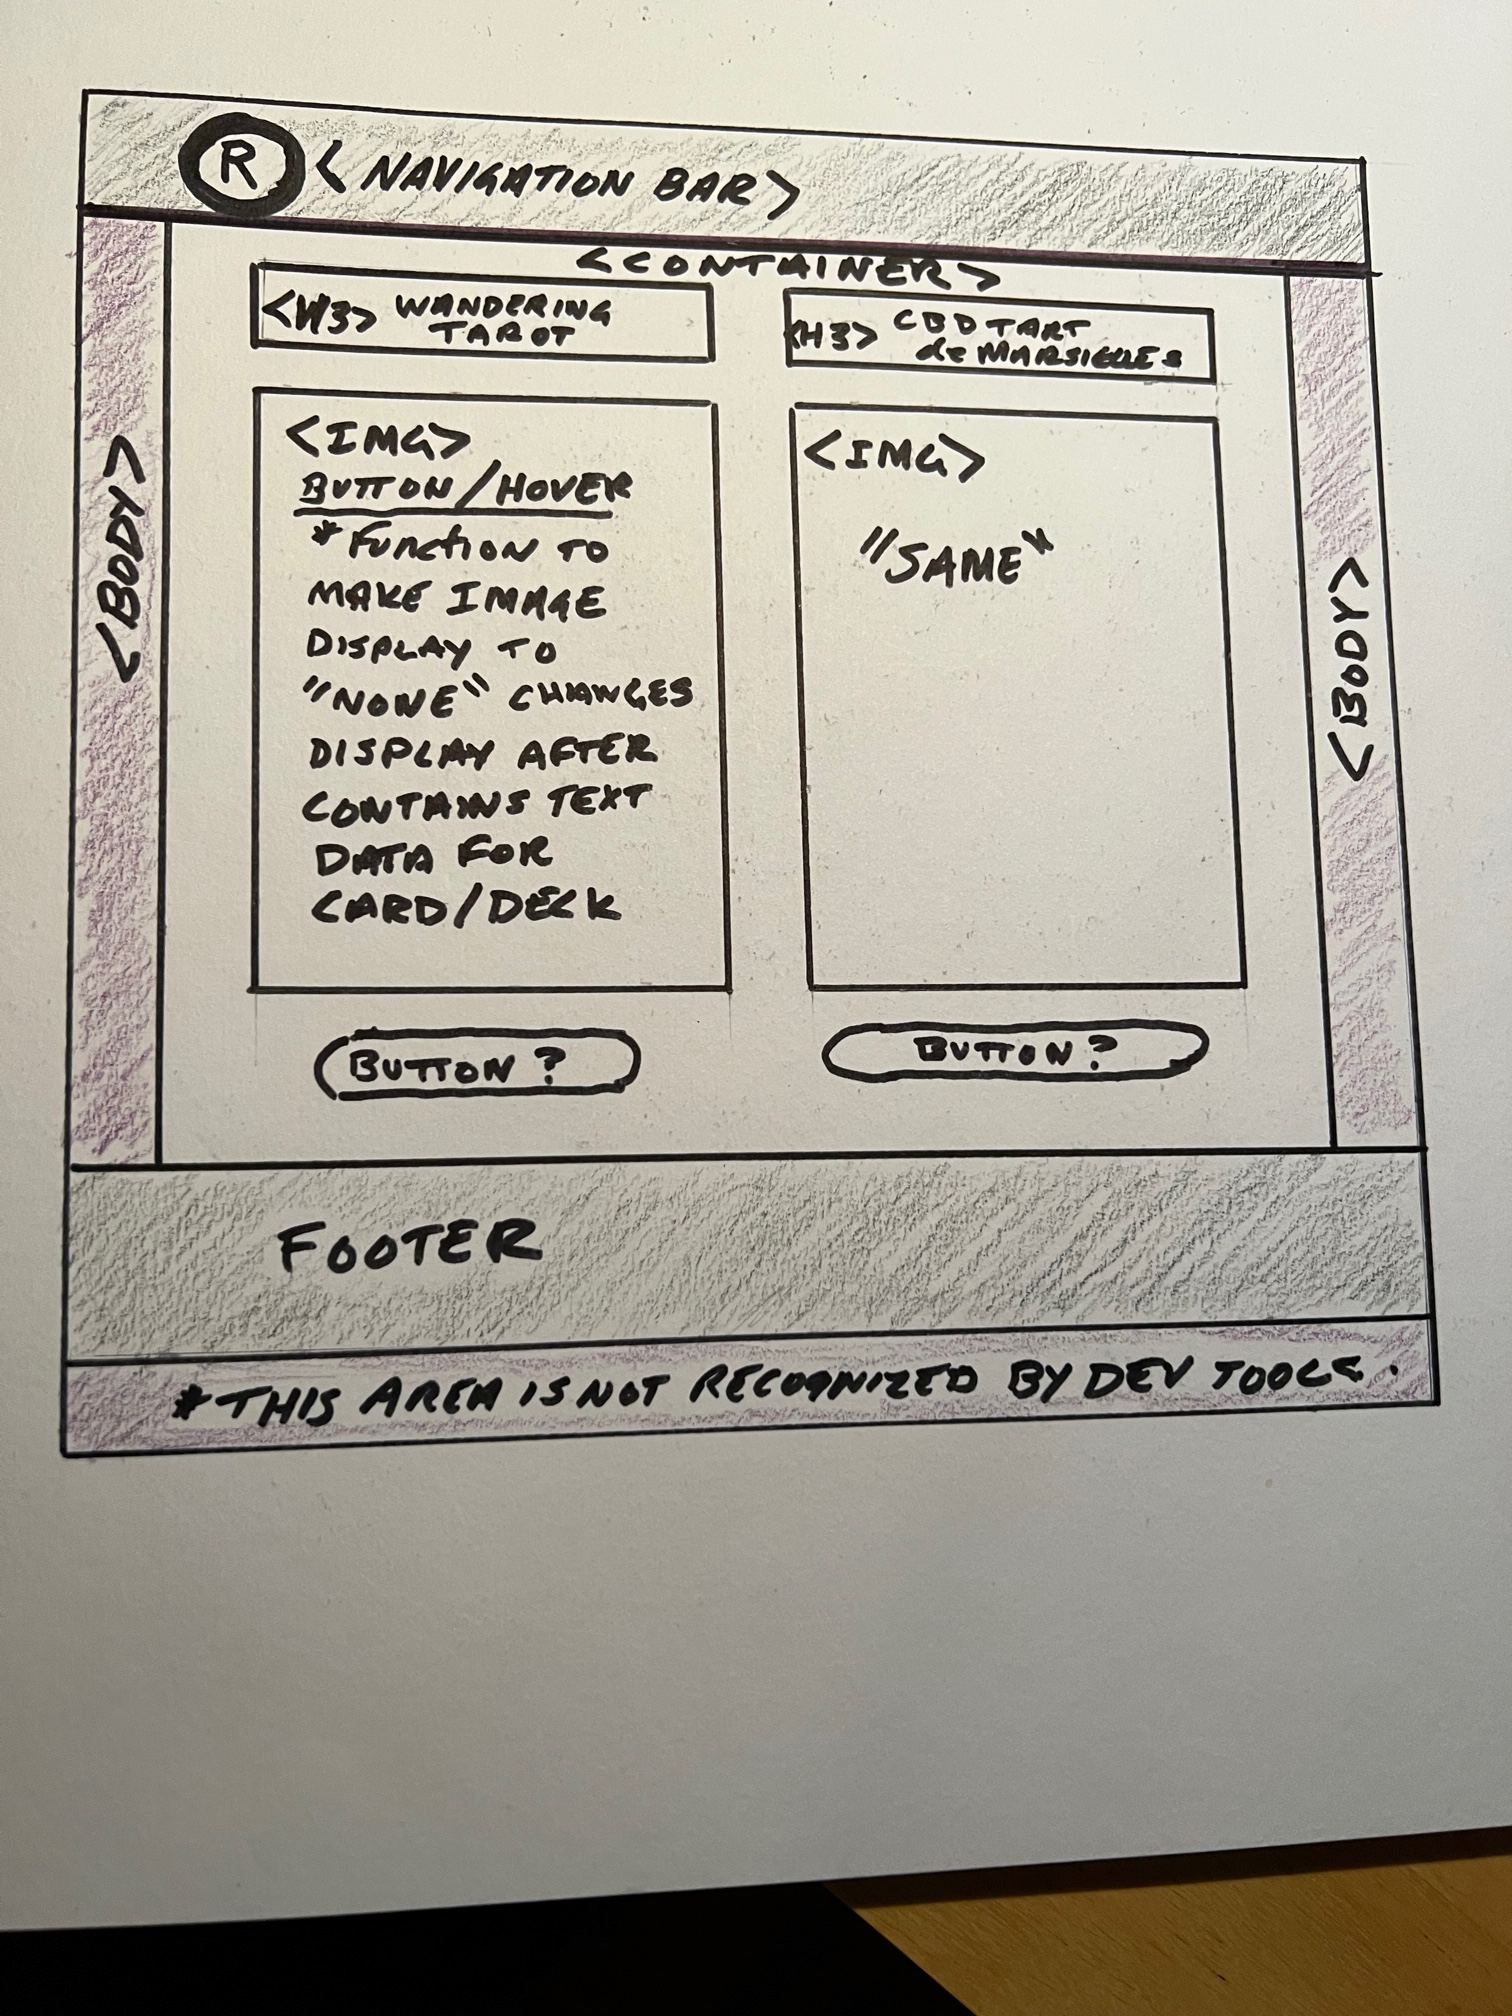 R <NAVIGATION BAR>
<CONTAINER>
<H3> WANDERING
TAROT
<H3> CBD TART
de MARSIELLES
<BODY>
<IMG>
BUTTON/HOVER
*Function TO
MAKE IMAGE
DISPLAY TO
"NONE" CHANGES
DISPLAY AFTER
CONTAINS TEXT
DATA FOR
CARD/DECK
<IMG>
"SAME"
<BODY>
BUTTON?
BUTTON?
FOOTER
*THIS AREA IS NOT RECOGNIZED BY DEV TOOLS.